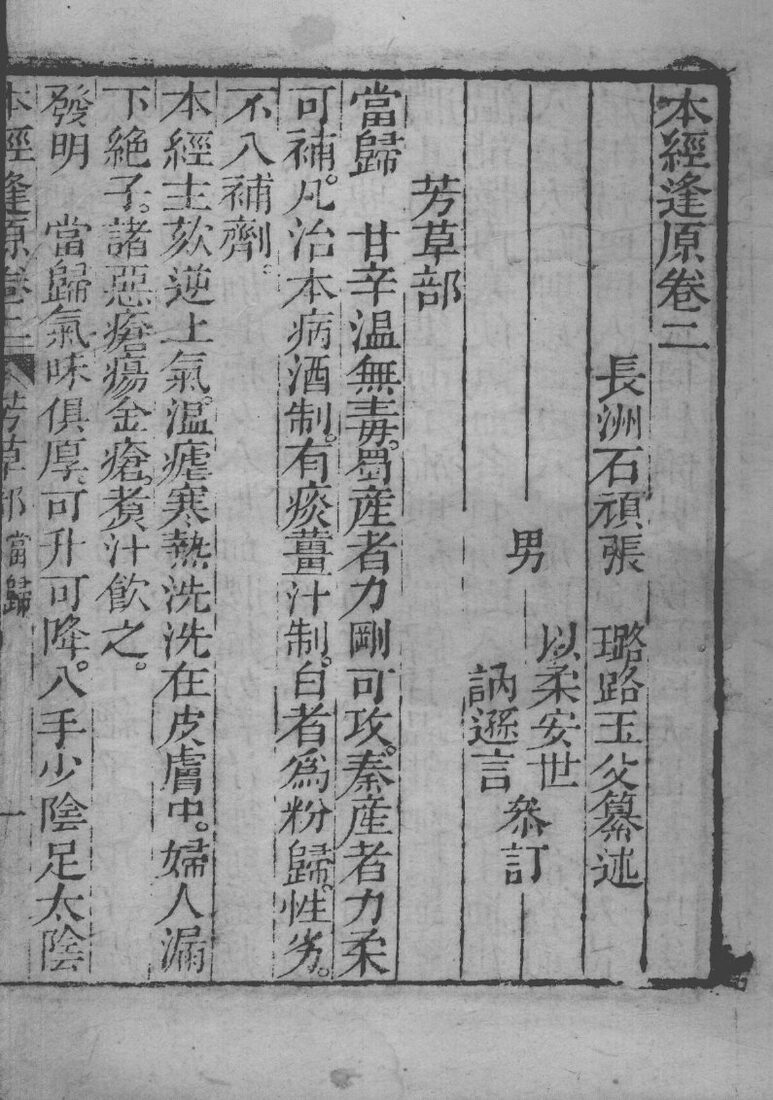 本經逢原卷二
長洲石頑張 璐路玉父纂述
男 以柔安世
訥遜言
參訂
芳草部
當歸 甘辛溫無毒。蜀產者力剛可攻。秦產者力柔
可補。凡治本病酒制。有痰薑汁制。白者爲粉歸。性劣。
不入補劑。
本經主欬逆上氣。溫瘧寒熱洗洗在皮膚中。婦人漏
下絕子。諸惡瘡瘍金瘡。煑汁飮之。
發明 當歸氣味俱厚。可升可降。入手少陰足太陰
本經逢原卷二 芳草部 當歸 一